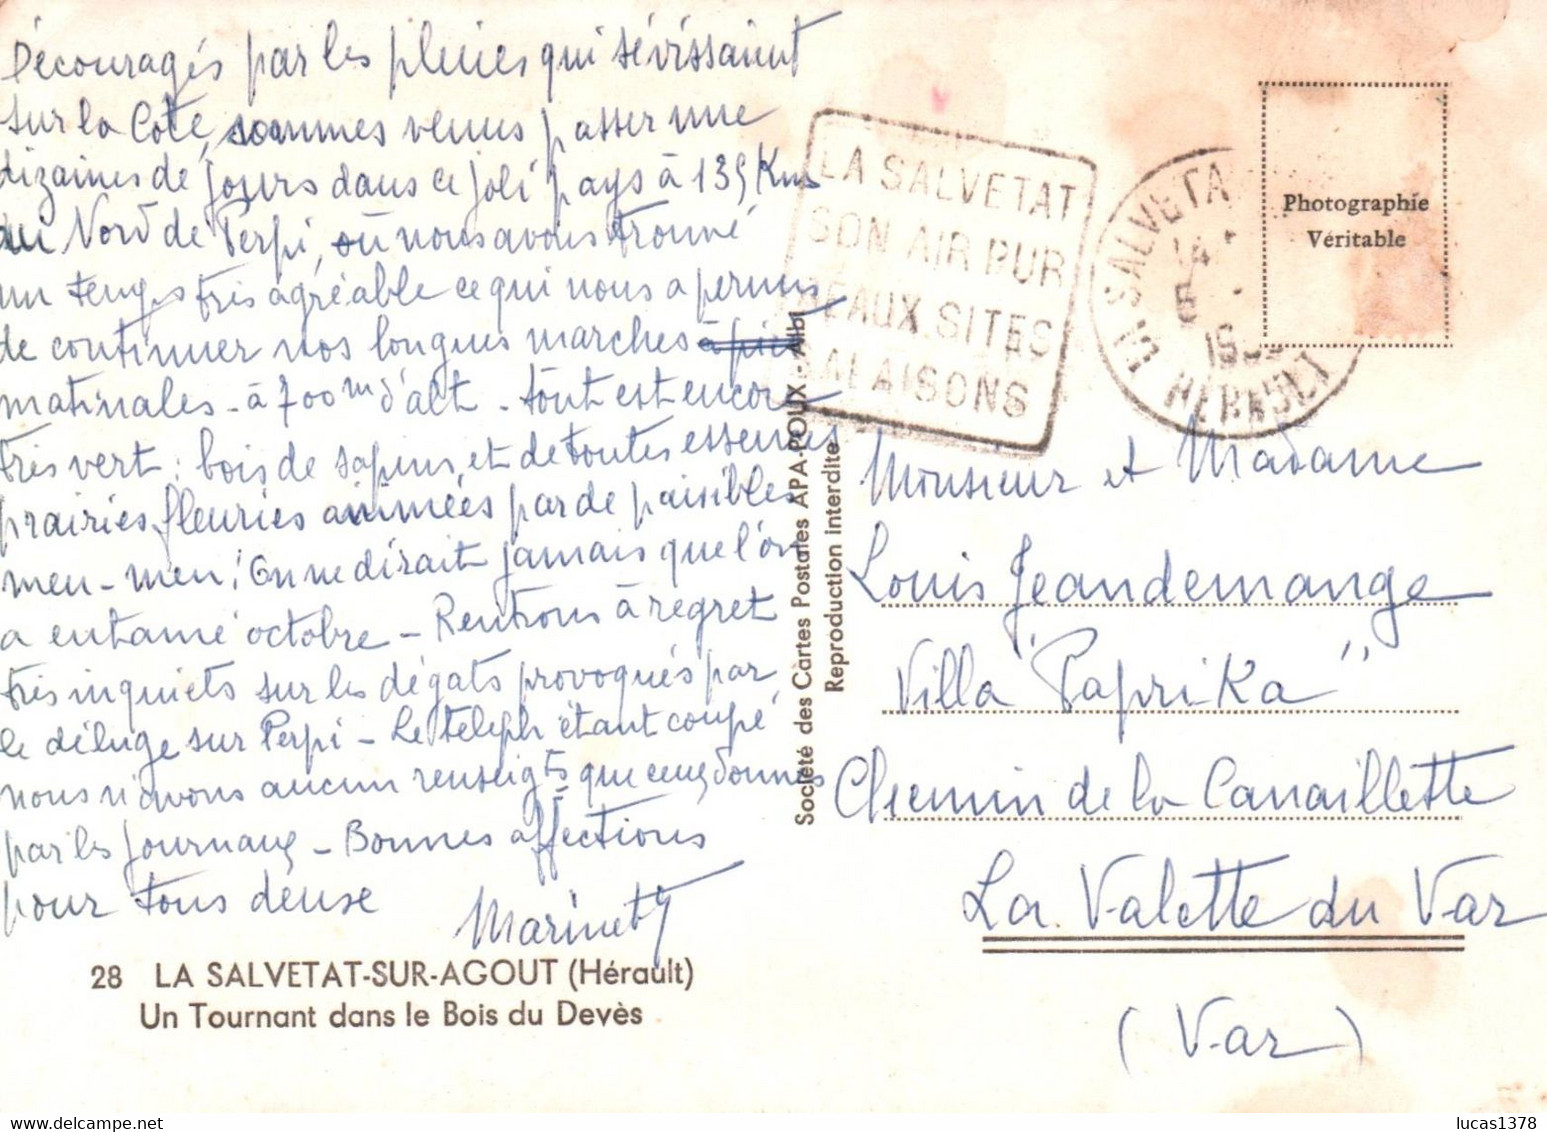 Découragés par les pluies qui sévissaient
sur la Côte, sommes venus passer une
dizaines de jours dans ce joli pays à 135 Kms
au Nord de Perpi, où nous avons trouvé
un temps très agréable ce qui nous a permis
de continuer nos longues marches
matinales - à 700 m d'alt - tout est encore
très vert : bois de sapins, et de toutes essences
prairies fleuries animées par de paisibles
meu-meu ! On ne dirait jamais que l'on
a entamé octobre - Rentrons à regret
très inquiets sur les dégats provoqués par
le déluge sur Perpi - Le téléph étant coupé
nous n'avons aucun renseigts que ceux donnés
par les journaux - Bonnes affections
pour tous deux
Marinety
28 LA SALVETAT-SUR-AGOUT (Hérault)
Un Tournant dans le Bois du Devès
Société des Cartes Postales APA-POUX - Albi
Reproduction interdite
LA SALVETAT
SON AIR PUR
BEAUX SITES
SALAISONS
SALVETA
HERAULT
Photographie
Véritable
Monsieur et Madame
Louis Jeandemange
Villa "Paprika"
Chemin de la Canaillette
La Valette du Var
(Var)
lucas1378